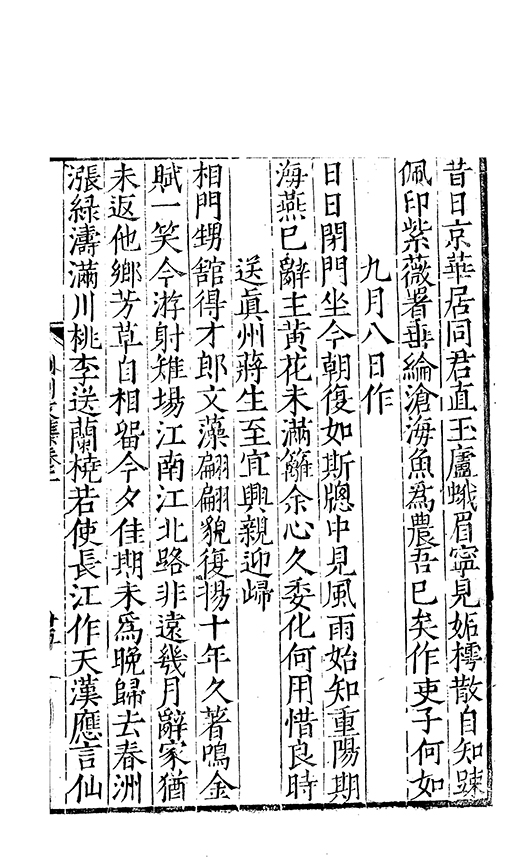 昔日京華居同君直玉廬蛾眉寧見妬樗散自知踈
佩印紫薇署垂綸滄海魚為農吾已矣作吏子何如
九月八日作
日日閉門坐今朝復如斯牎中見風雨始知重陽期
海燕已辭主黃花未滿籬余心久委化何用惜良時
送眞州蔣生至宜興親迎歸
相門甥舘得才郎文藻翩翩貌復揚十年久著鳴金
賦一笑今游射雉場江南江北路非遠幾月辭家猶
未返他鄉芳草自相畱今夕佳期未為晚歸去春洲
漲綠濤滿川桃李送蘭橈若使長江作天漢應言仙